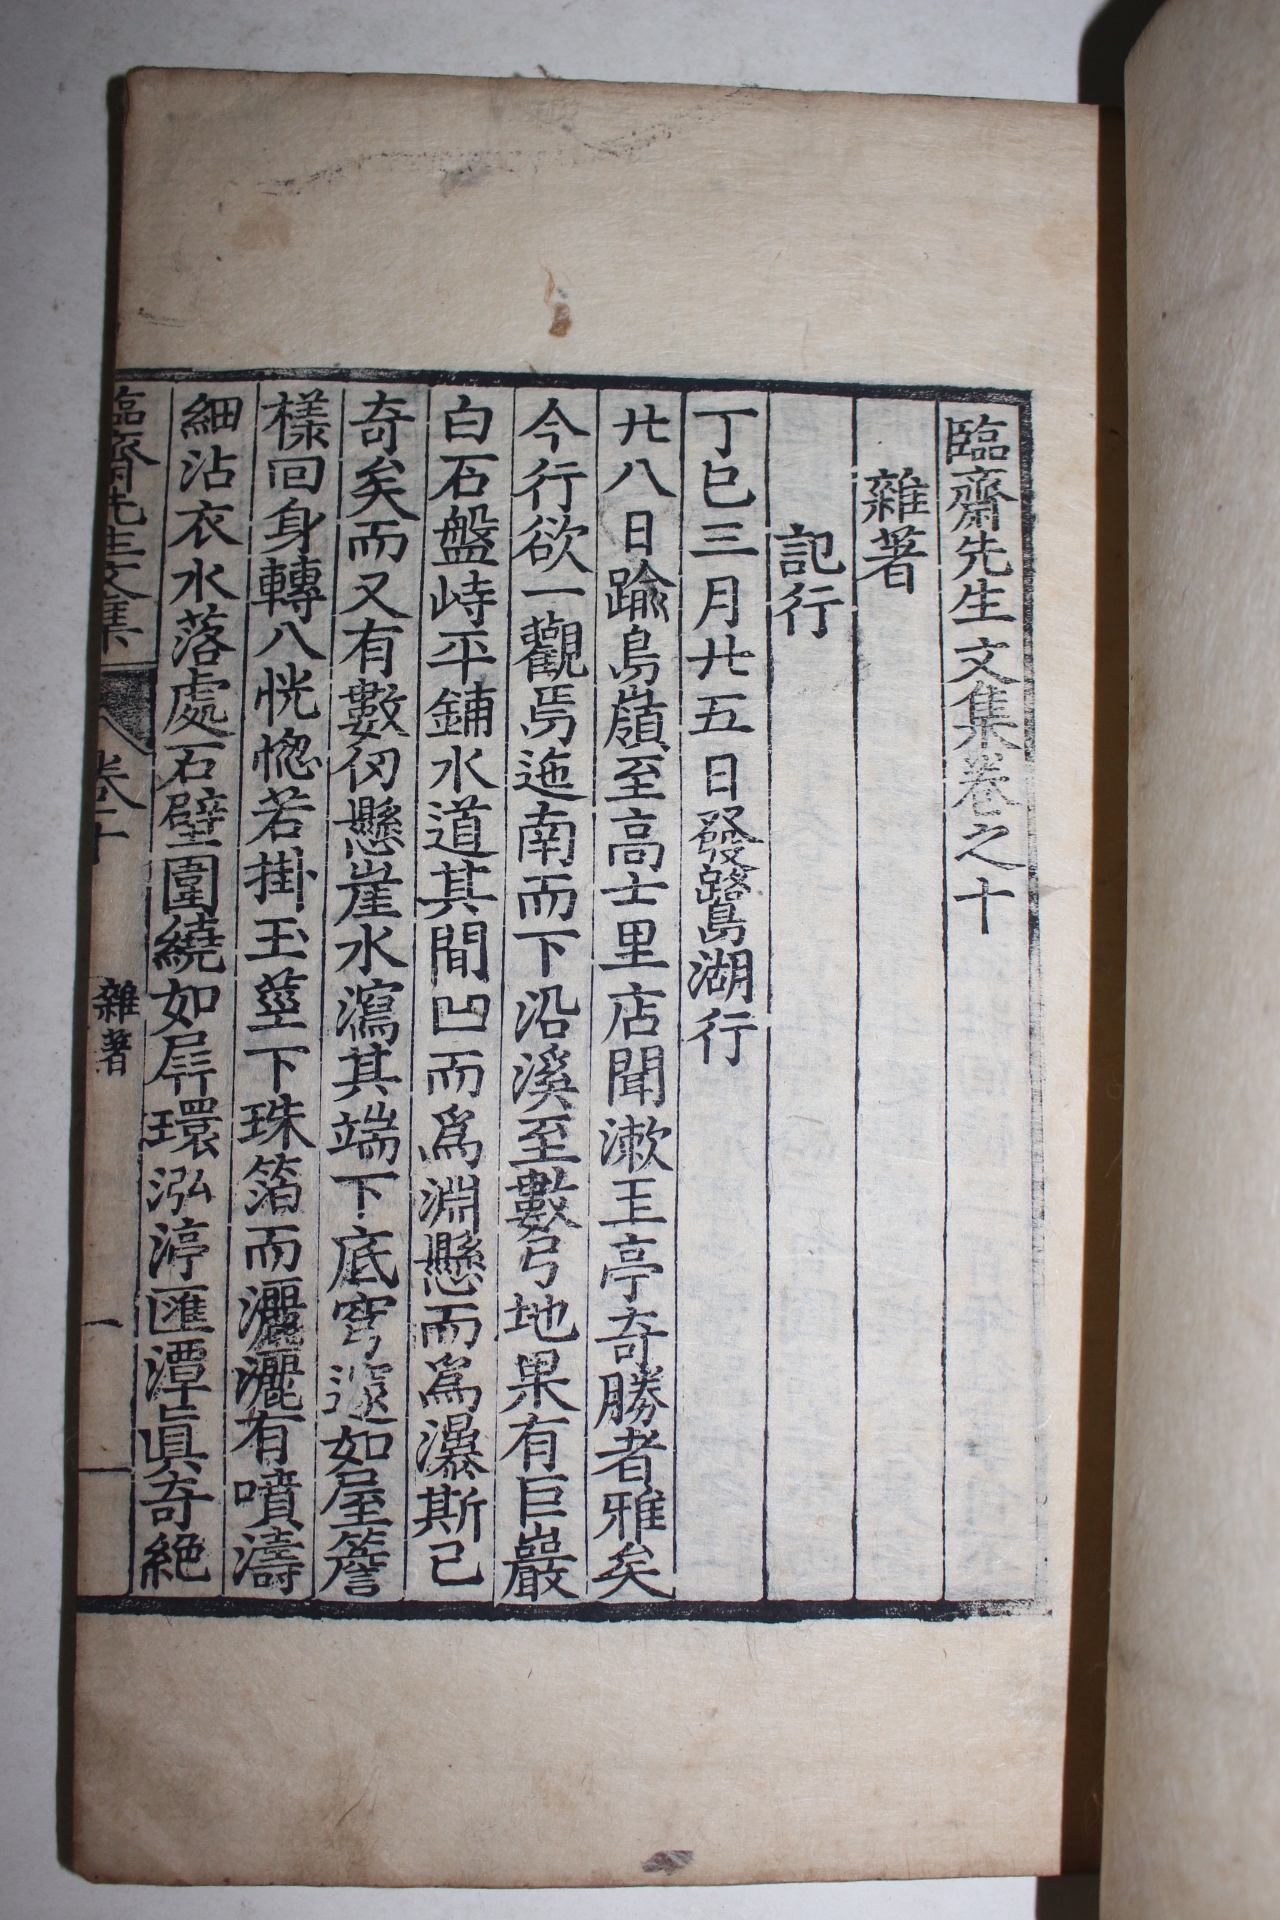 臨齋先生文集卷之十
雜著
記行
丁巳三月廿五日發鷺湖行
廿八日踰鳥嶺至高士里店聞漱玉亭奇勝者雅矣
今行欲一觀焉迤南而下沿溪至數弓地果有巨巖
白石盤峙平鋪水道其間凹而爲淵懸而爲瀑斯已
奇矣而又有數仞懸崖水瀉其端下底穹邃如屋簷
樣回身轉入恍惚若掛玉莖下珠箔而灑灑有噴濤
細沾衣水落處石壁圍繞如屛環泓渟匯潭眞奇絶
臨齋先生文集 卷十 雜著 一